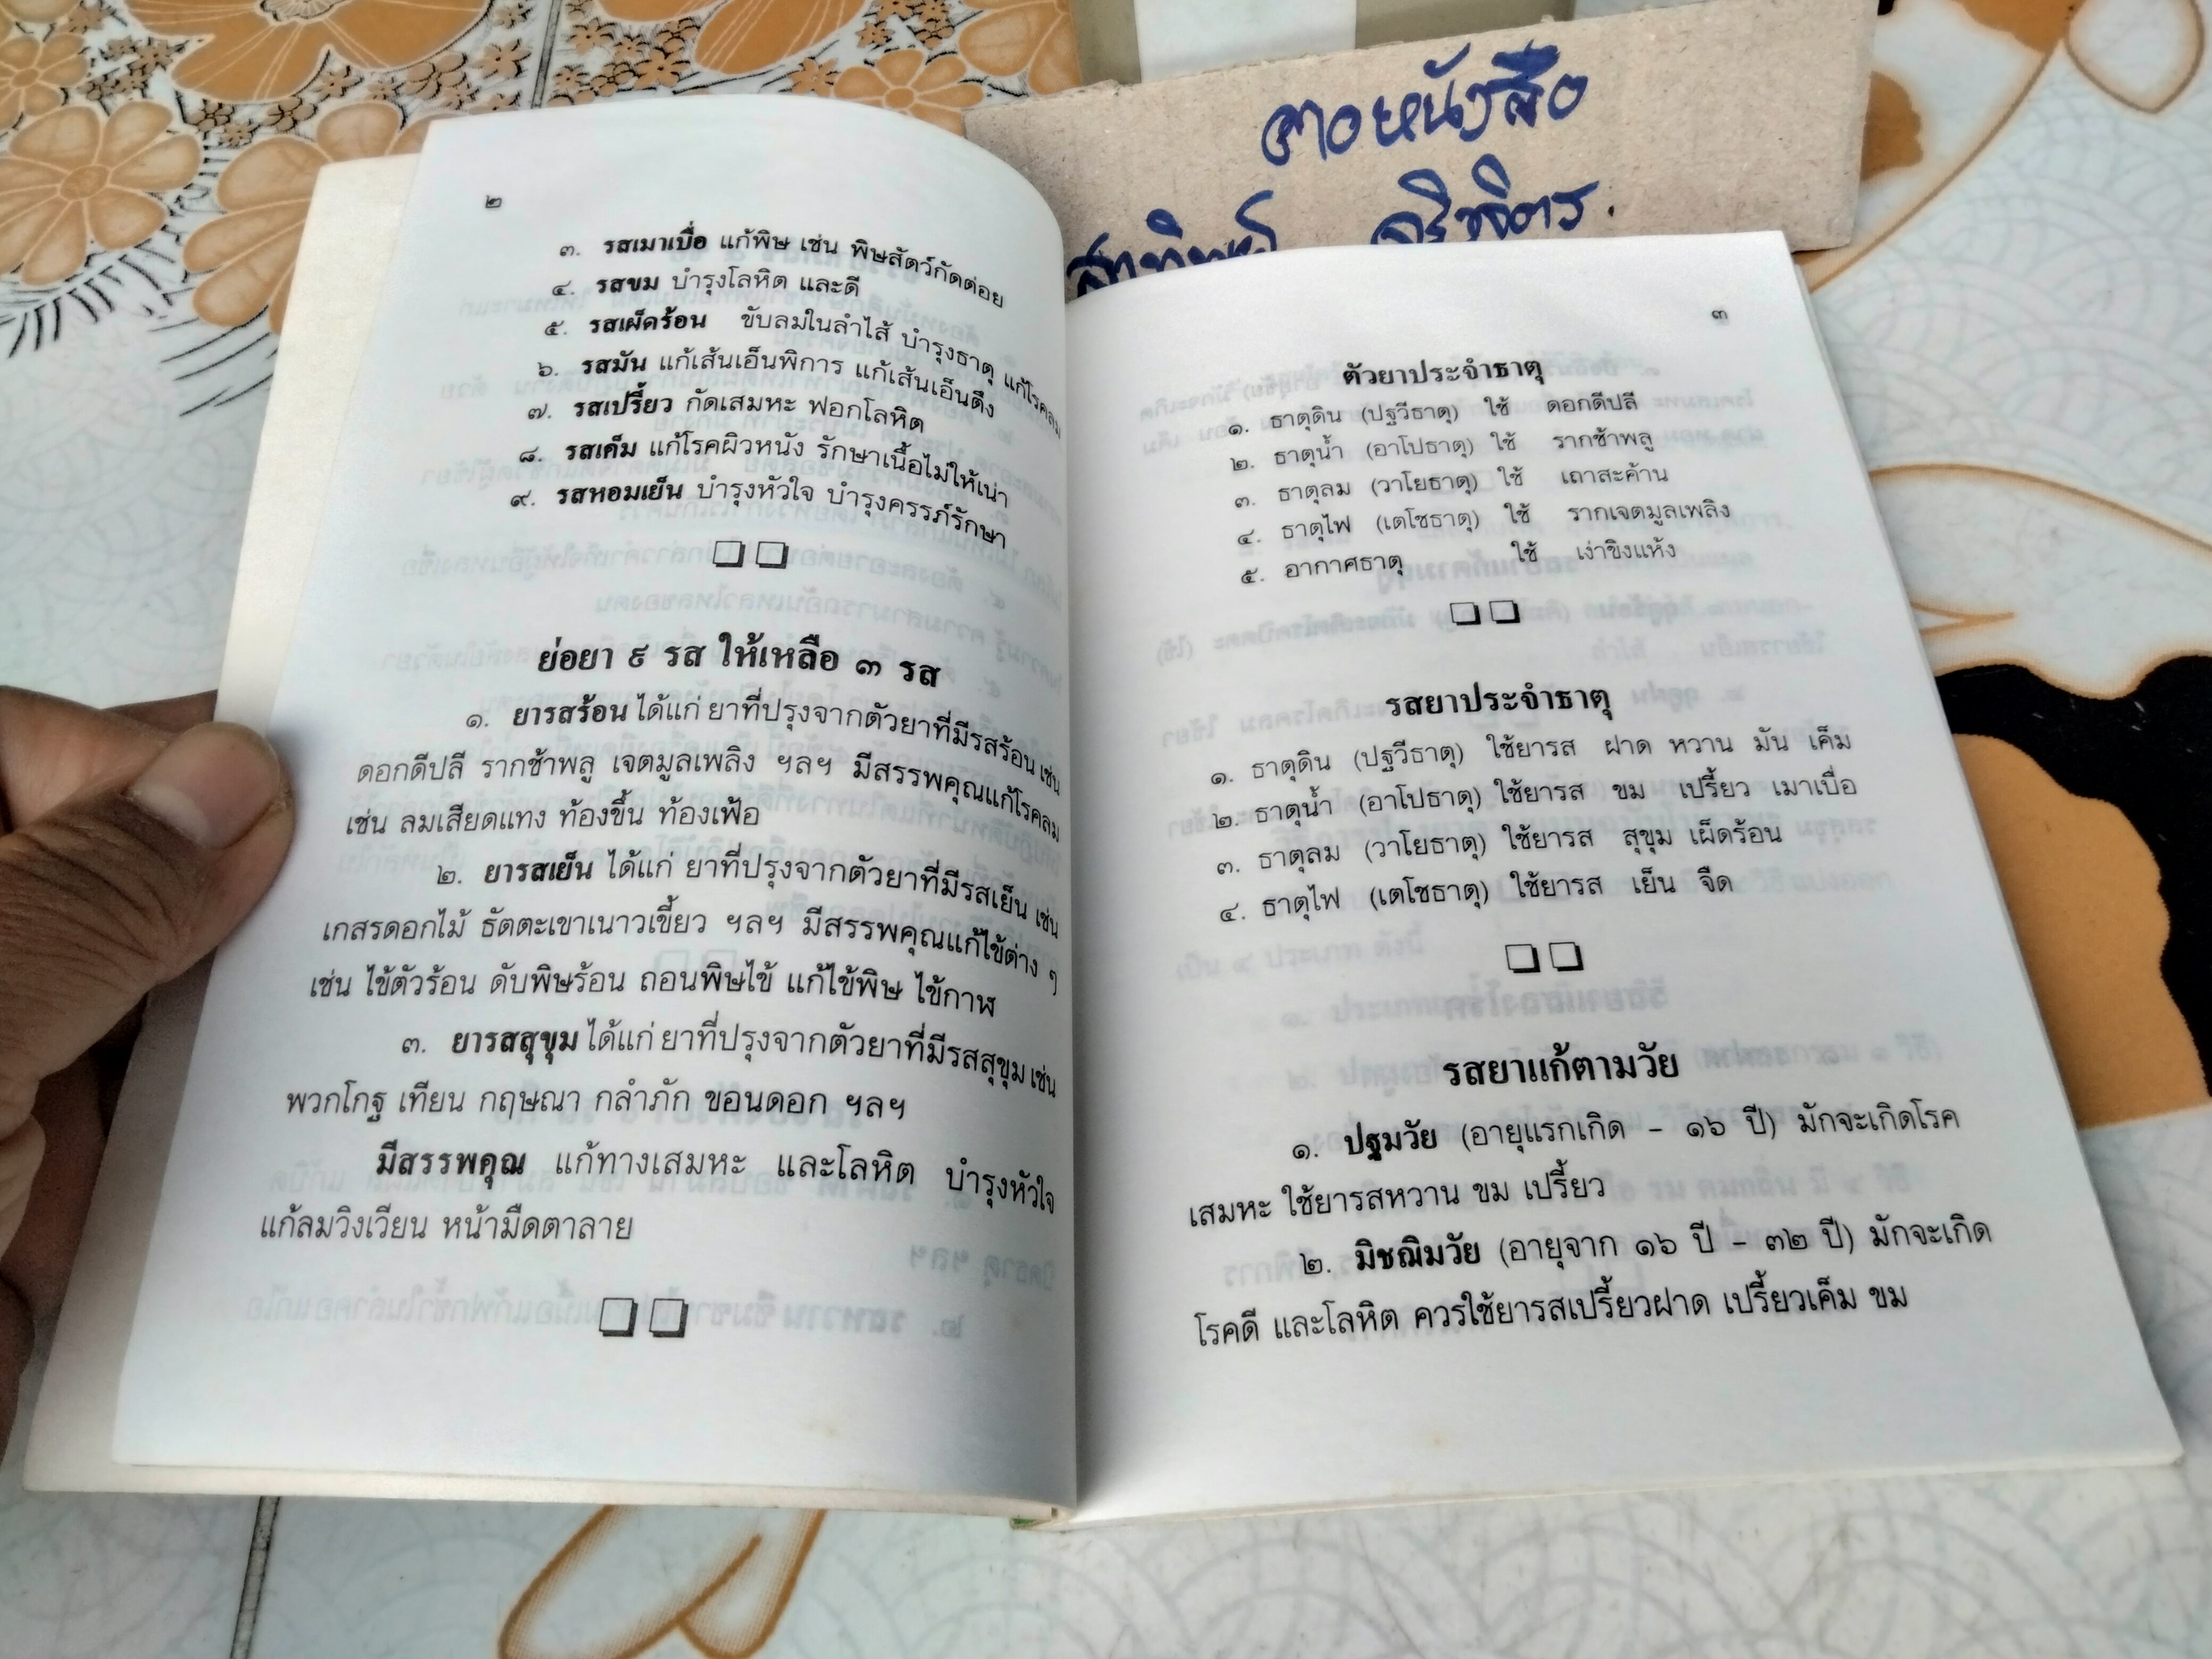 ๒
๓. รสเมาเบื่อ แก้พิษ เช่น พิษสัตว์กัดต่อย
๔. รสขม บำรุงโลหิต และดี
๕. รสเผ็ดร้อน ขับลมในลำไส้ บำรุงธาตุ แก้โรคลม
๖. รสมัน แก้เส้นเอ็นพิการ แก้เส้นเอ็นตึง
๗. รสเปรี้ยว กัดเสมหะ ฟอกโลหิต
๘. รสเค็ม แก้โรคผิวหนัง รักษาเนื้อไม่ให้เน่า
๙. รสหอมเย็น บำรุงหัวใจ บำรุงครรภ์รักษา
ย่อยา ๙ รส ให้เหลือ ๓ รส
๑. ยารสร้อน ได้แก่ ยาที่ปรุงจากตัวยาที่มีรสร้อน เช่น
ดอกดีปลี รากช้าพลู เจตมูลเพลิง ฯลฯ มีสรรพคุณแก้โรคลม
เช่น ลมเสียดแทง ท้องขึ้น ท้องเฟ้อ
๒. ยารสเย็น ได้แก่ ยาที่ปรุงจากตัวยาที่มีรสเย็น เช่น
เกสรดอกไม้ ธัตตะเขาเนาวเขี้ยว ฯลฯ มีสรรพคุณแก้ไข้ต่าง ๆ
เช่น ไข้ตัวร้อน ดับพิษร้อน ถอนพิษไข้ แก้ไข้พิษ ไข้กาฬ
๓. ยารสสุขุม ได้แก่ ยาที่ปรุงจากตัวยาที่มีรสสุขุม เช่น
พวกโกฐ เทียน กฤษณา กลำภัก ขอนดอก ฯลฯ
มีสรรพคุณ แก้ทางเสมหะ และโลหิต บำรุงหัวใจ
แก้ลมวิงเวียน หน้ามืดตาลาย
๓
ตัวยาประจำธาตุ
๑. ธาตุดิน (ปฐวีธาตุ) ใช้ ดอกดีปลี
๒. ธาตุน้ำ (อาโปธาตุ) ใช้ รากช้าพลู
๓. ธาตุลม (วาโยธาตุ) ใช้ เถาสะค้าน
๔. ธาตุไฟ (เตโชธาตุ) ใช้ รากเจตมูลเพลิง
๕. อากาศธาตุ ใช้ เง่าขิงแห้ง
รสยาประจำธาตุ
๑. ธาตุดิน (ปฐวีธาตุ) ใช้ยารส ฝาด หวาน มัน เค็ม
๒. ธาตุน้ำ (อาโปธาตุ) ใช้ยารส ขม เปรี้ยว เมาเบื่อ
๓. ธาตุลม (วาโยธาตุ) ใช้ยารส สุขุม เผ็ดร้อน
๔. ธาตุไฟ (เตโชธาตุ) ใช้ยารส เย็น จืด
รสยาแก้ตามวัย
๑. ปฐมวัย (อายุแรกเกิด - ๑๖ ปี) มักจะเกิดโรค
เสมหะ ใช้ยารสหวาน ขม เปรี้ยว
๒. มิชฌิมวัย (อายุจาก ๑๖ ปี - ๓๒ ปี) มักจะเกิด
โรคดี และโลหิต ควรใช้ยารสเปรี้ยวฝาด เปรี้ยวเค็ม ขม